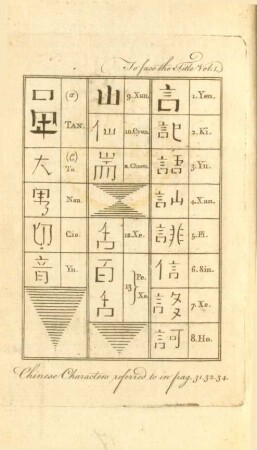 To face the Title Vol. 1.
(a)
TAN.
大 (C) Ta
Nan
切 Cie
音 Yn
山 9. Xan.
仙 10. Cyen.
耑 Chuen.
舌 12. Xe.
百 Pe.
13
舌 Xe.
言 1. Yen.
記 2. Ki.
語 3. Yu.
訕 4. Xan.
誹 5. Fi.
信 6. Sin.
7. Xe.
訶 8. Ho.
Chinese Characters referred to in pag. 31.32.34.